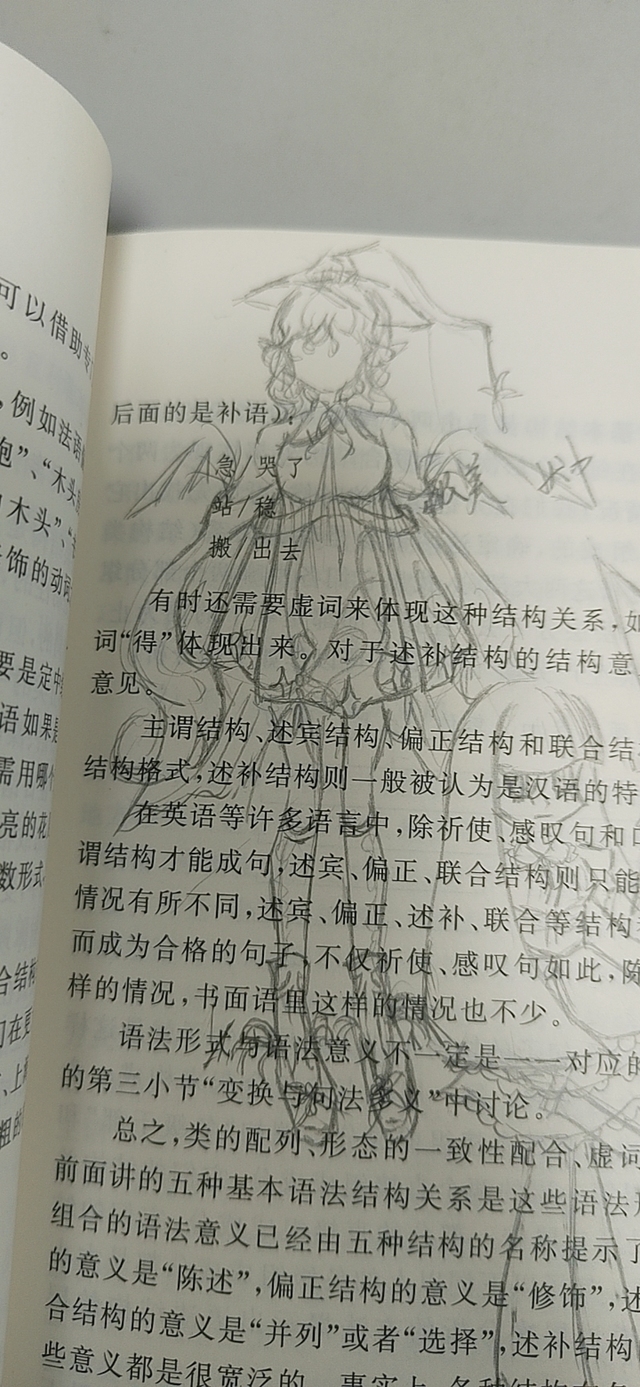 可以借助专
。
,例如法语
”、“木头
木头”、“
饰的动词
要是定中
语如果是
需用哪
亮的花
数形式
合结构
后面的是补语）：
急/哭了
站/稳
搬/出去
有时还需要虚词来体现这种结构关系,如
词“得”体现出来。对于述补结构的结构意
意见。
主谓结构、述宾结构、偏正结构和联合结
结构格式,述补结构则一般被认为是汉语的特
在英语等许多语言中,除祈使、感叹句和口
谓结构才能成句,述宾、偏正、联合结构则只能
情况有所不同,述宾、偏正、述补、联合等结构
而成为合格的句子,不仅祈使、感叹句如此,陈
样的情况,书面语里这样的情况也不少。
语法形式与语法意义不一定是一一对应的
的第三小节“变换与句法多义”中讨论。
总之,类的配列、形态的一致性配合、虚词
前面讲的五种基本语法结构关系是这些语法形
组合的语法意义已经由五种结构的名称提示了
的意义是“陈述”,偏正结构的意义是“修饰”,述
合结构的意义是“并列”或者“选择”,述补结构
些意义都是很宽泛的。事实上,各种结构